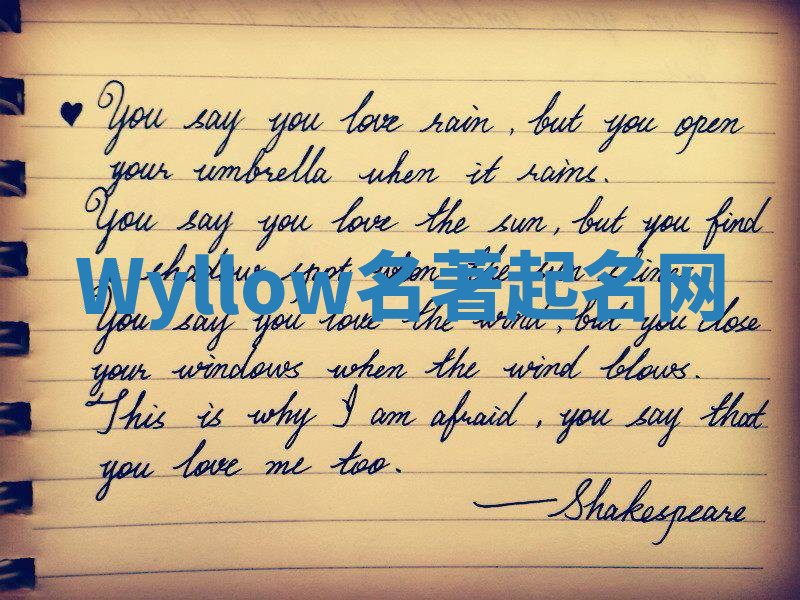 ♥ You say you love rain, but you open
your umbrella when it rains.
You say you love the sun, but you find
shadow spot when the sun shines.
Wyllow名著起名网
You say you love the wind, but you close
your windows when the wind blows.
This is why I am afraid, you say that
you love me too.
—Shakespeare